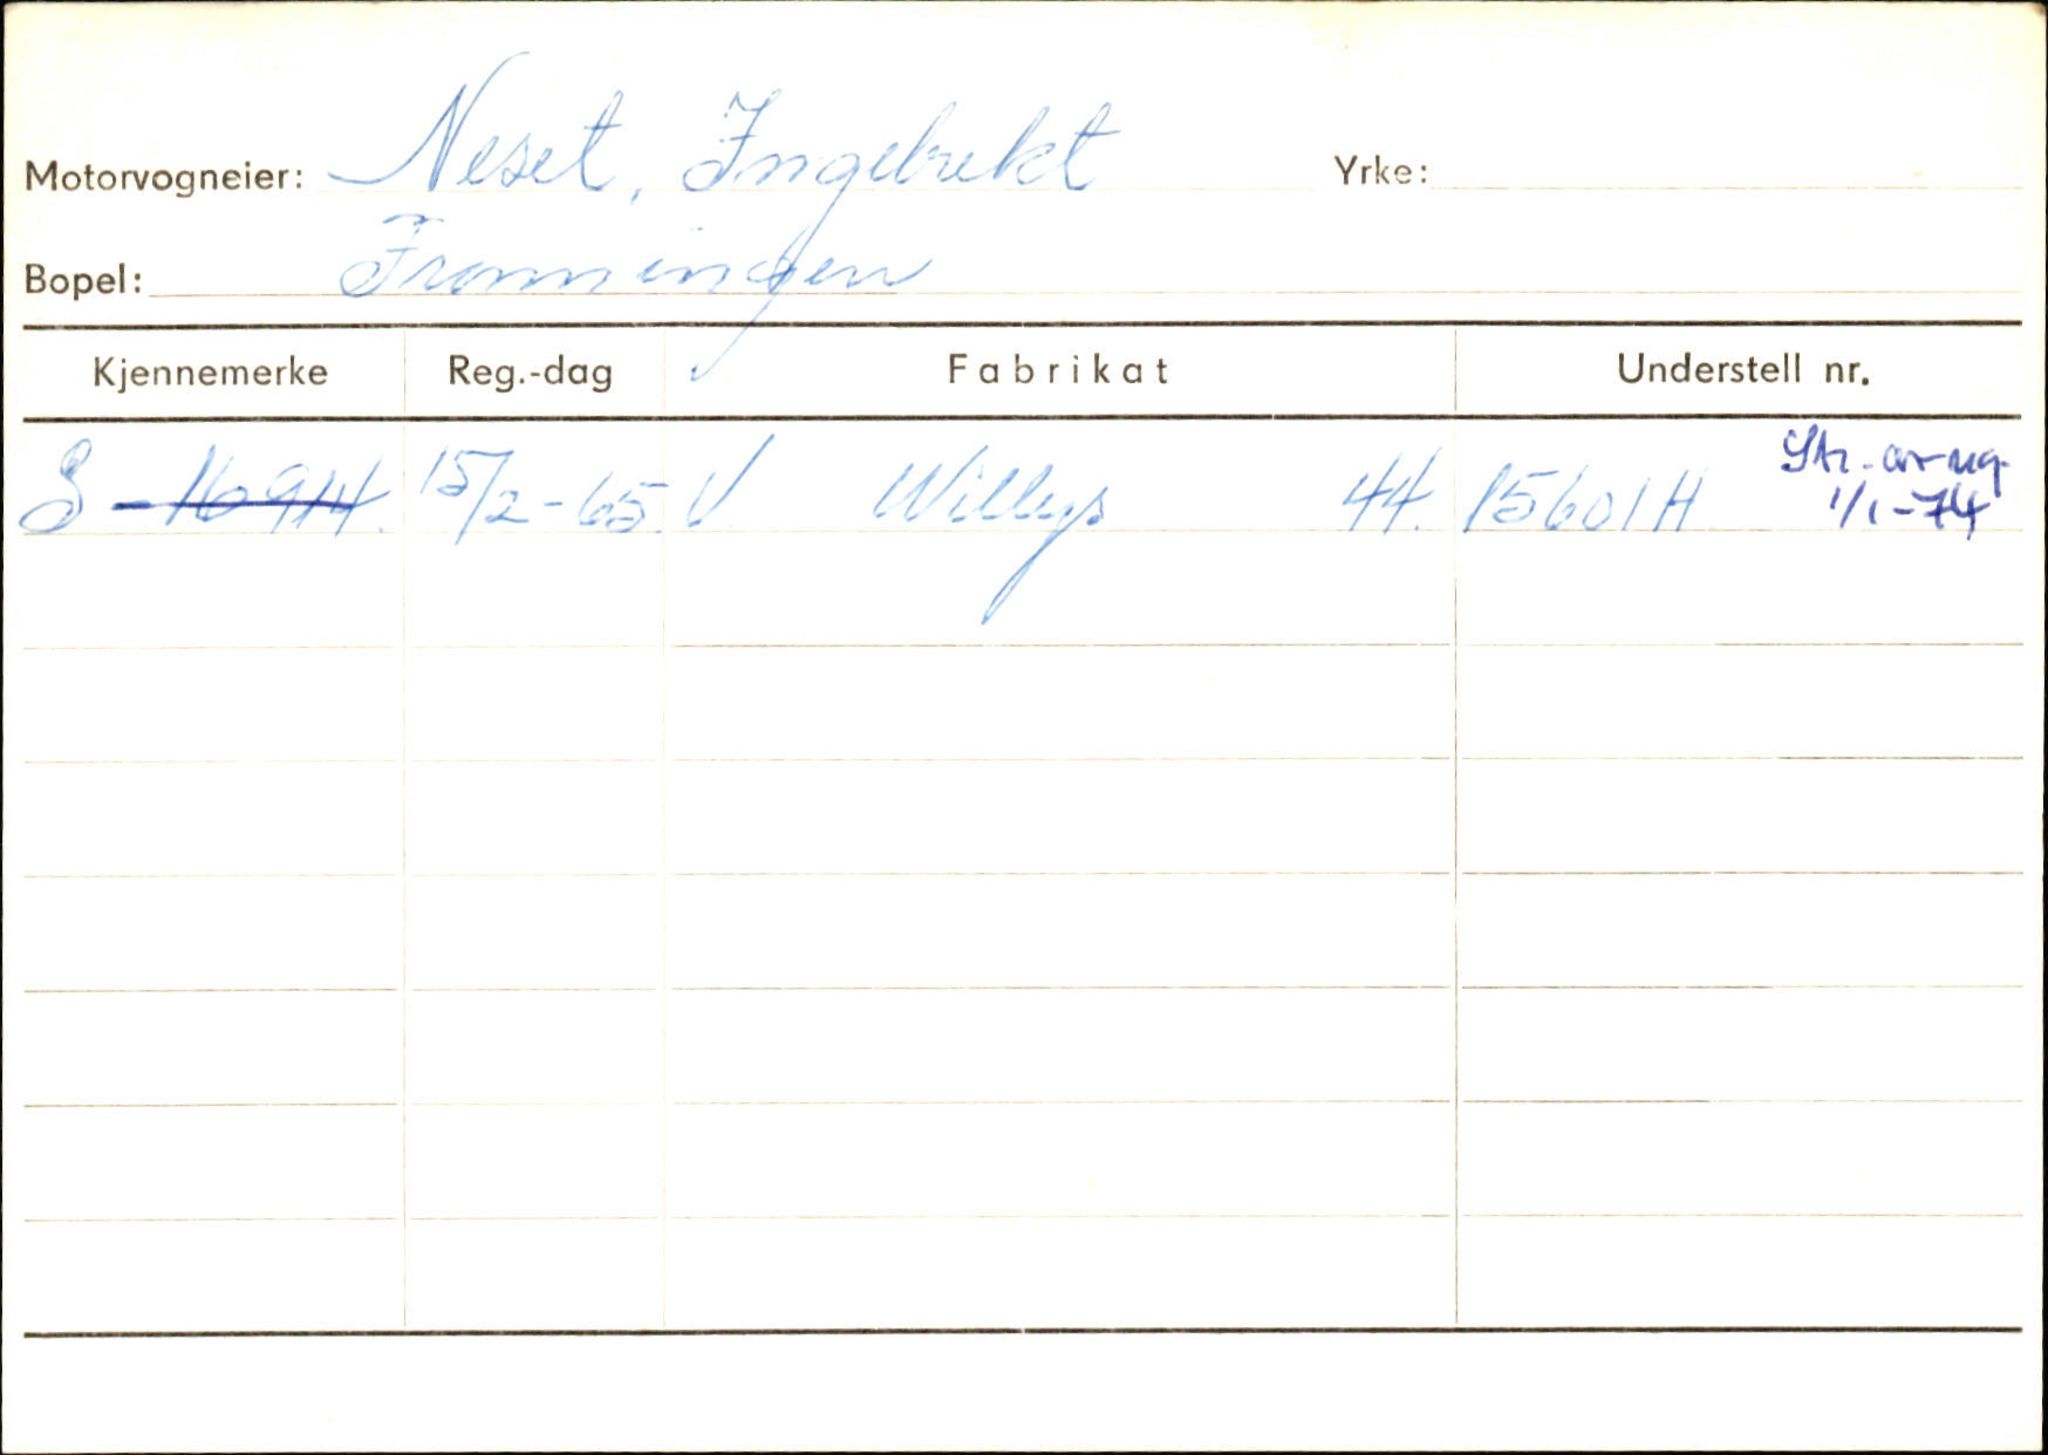 Motorvogneier: Neset, Ingebrekt Yrke:
Bopel: Fronningen
Kjennemerke Reg.-dag Fabrikat Understell nr.
S-16914. 15/2-65. V Willys 44. 15601H Str. av reg.
1/1-74